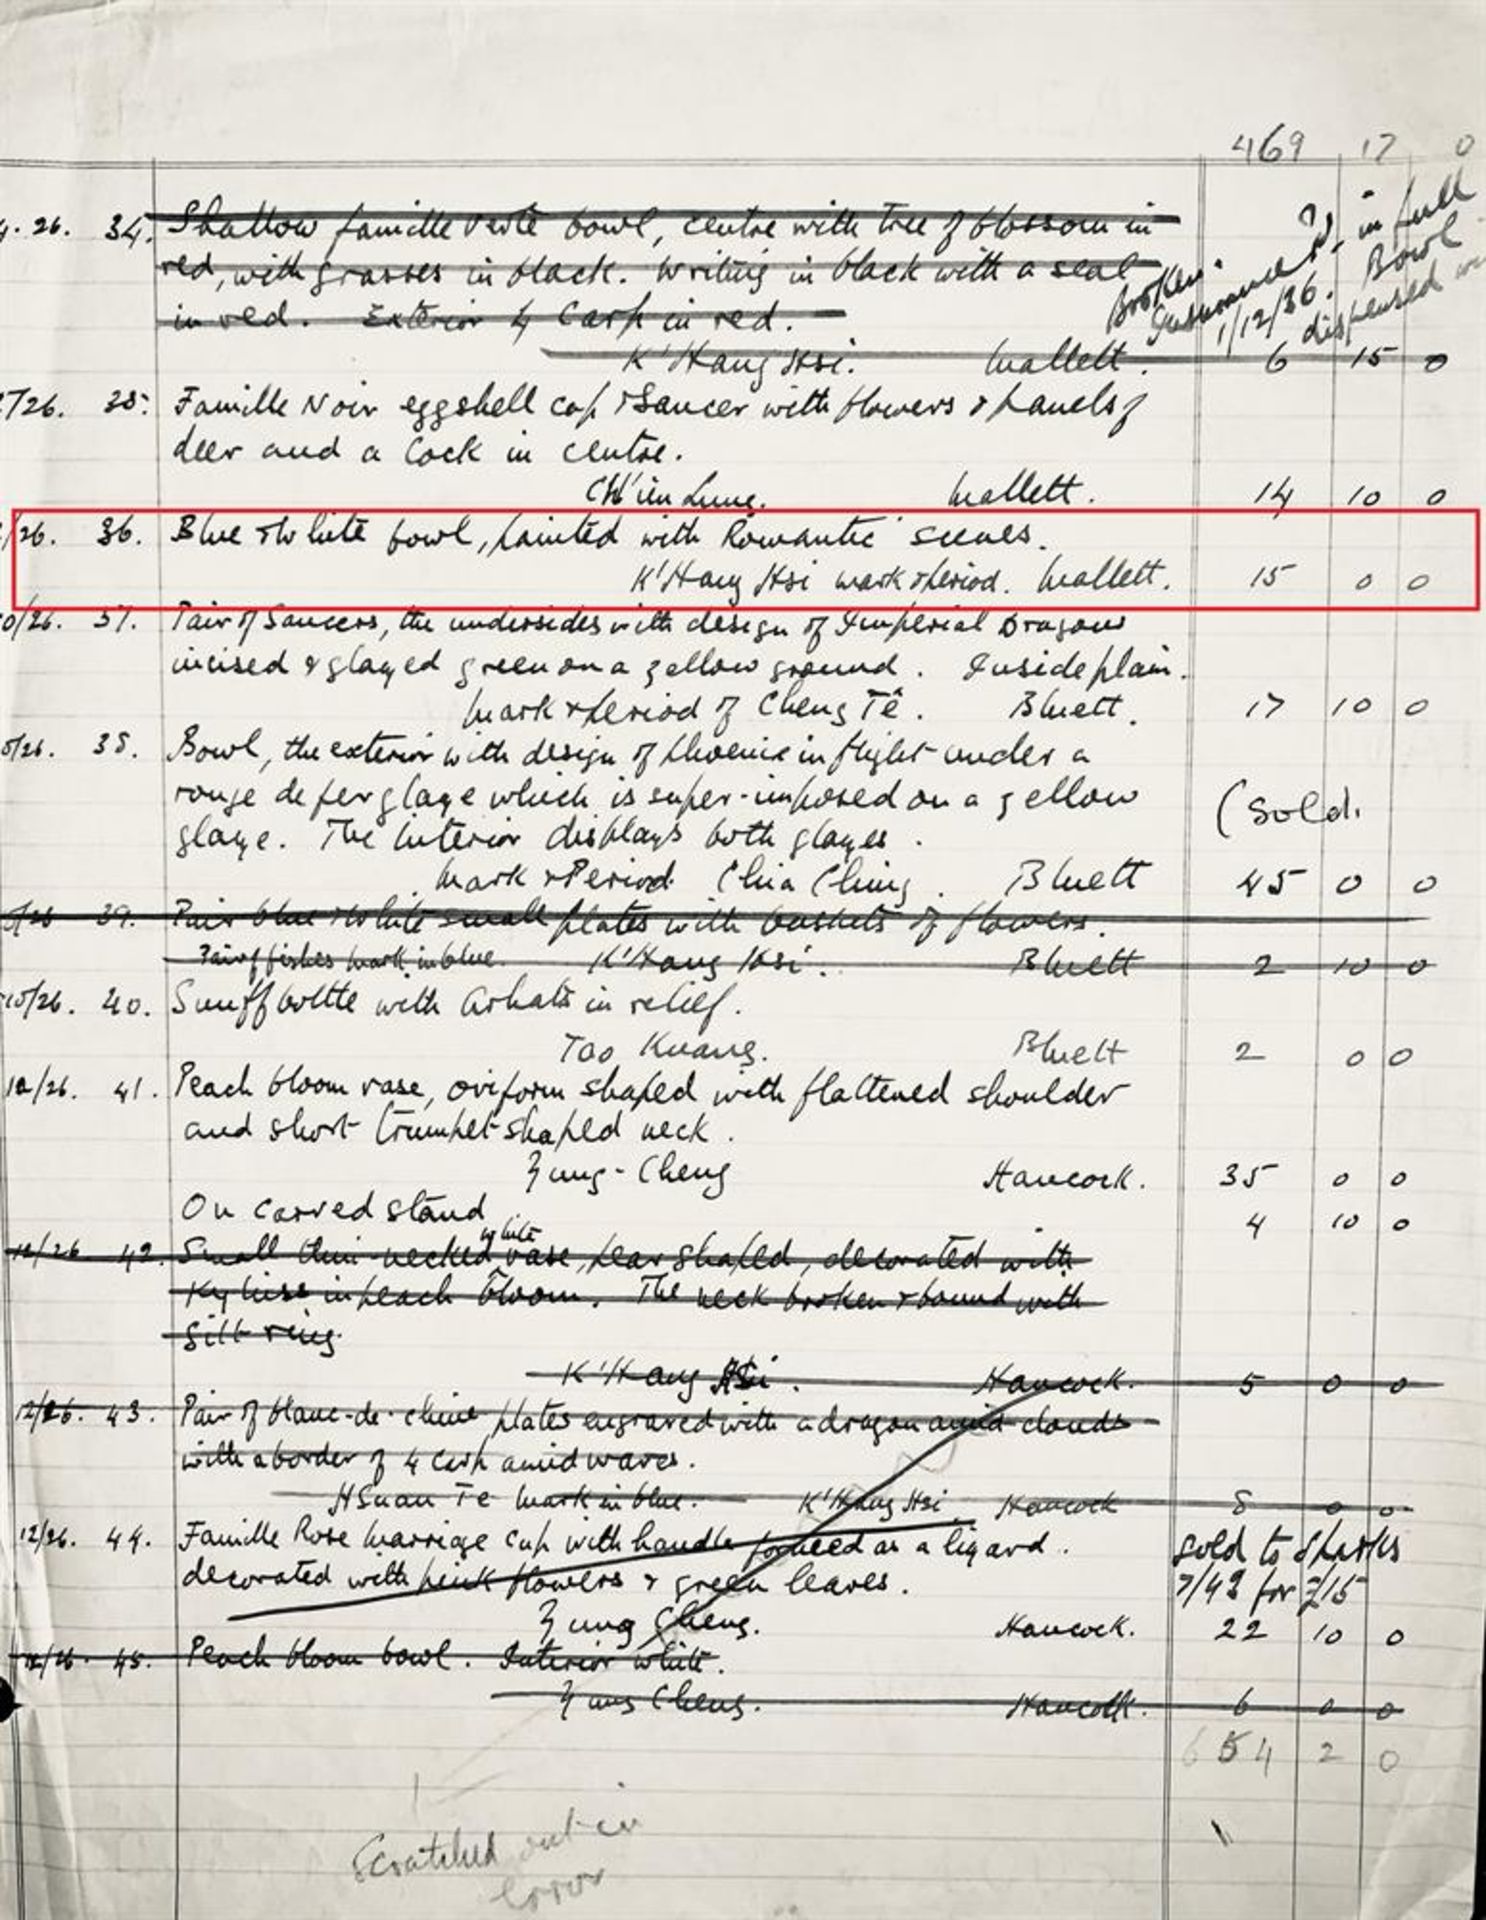 469 17 0
4.26. 34. Shallow famille verte bowl, centre with tree of blossom in
red, with grasses in black. Writing in black with a seal
in red. Exterior 4 Cash in red.
Broken.
Insurance Pd. in full
1/12/36. Bowl
dispensed
K'Hang Hsi. Mallett. 6 15 0
7/26. 35. Famille Noir eggshell cup & Saucer with flowers & panels of
deer and a Cock in centre.
CH'ien Lung. Mallett. 14 10 0
/26. 36. Blue & White bowl, painted with Romantic scenes.
K'Hang Hsi mark & Period. Mallett. 15 0 0
0/26. 37. Pair of Saucers, the undersides with design of Imperial Dragons
incised & glazed green on a yellow ground. Inside plain.
Mark & Period of Cheng Tê. Bluett. 17 10 0
5/26. 38. Bowl, the exterior with design of phoenix in flight under a
rouge de fer glaze which is super-imposed on a yellow
glaze. The interior displays both glazes.
(Sold.
Mark & Period Chia Ching. Bluett 45 0 0
39. Pair blue & White small plates with baskets of flowers.
Pair of fishes mark in blue. K'Hang Hsi. Bluett 2 10 0
10/26. 40. Snuff bottle with Arhats in relief.
Tao Kuang. Bluett 2 0 0
10/26. 41. Peach bloom vase, oviform shaped with flattened shoulder
and short trumpet-shaped neck.
Yung-Cheng Hancock. 35 0 0
On carved stand 4 10 0
white
12/26 42. Small thin-necked vase, pear shaped, decorated with
Kylins in peach bloom. The neck broken & bound with
gilt ring.
K'Hang Hsi. Hancock. 5 0 0
12/26. 43. Pair of blanc-de-chine plates engraved with a dragon amid clouds
with a border of 4 Cash amid waves.
HSuan Te mark in blue. K'Hang Hsi Hancock 8 0 0
12/26. 44. Famille Rose marriage cup with handle formed as a lizard.
decorated with pink flowers & green leaves.
Sold to Sparks
7/43 for £15
Yung Cheng. Hancock. 22 10 0
12/26. 45. Peach bloom bowl. Interior white.
Yung Cheng. Hancock. 6 0 0
654 2 0
Scratched out in
error